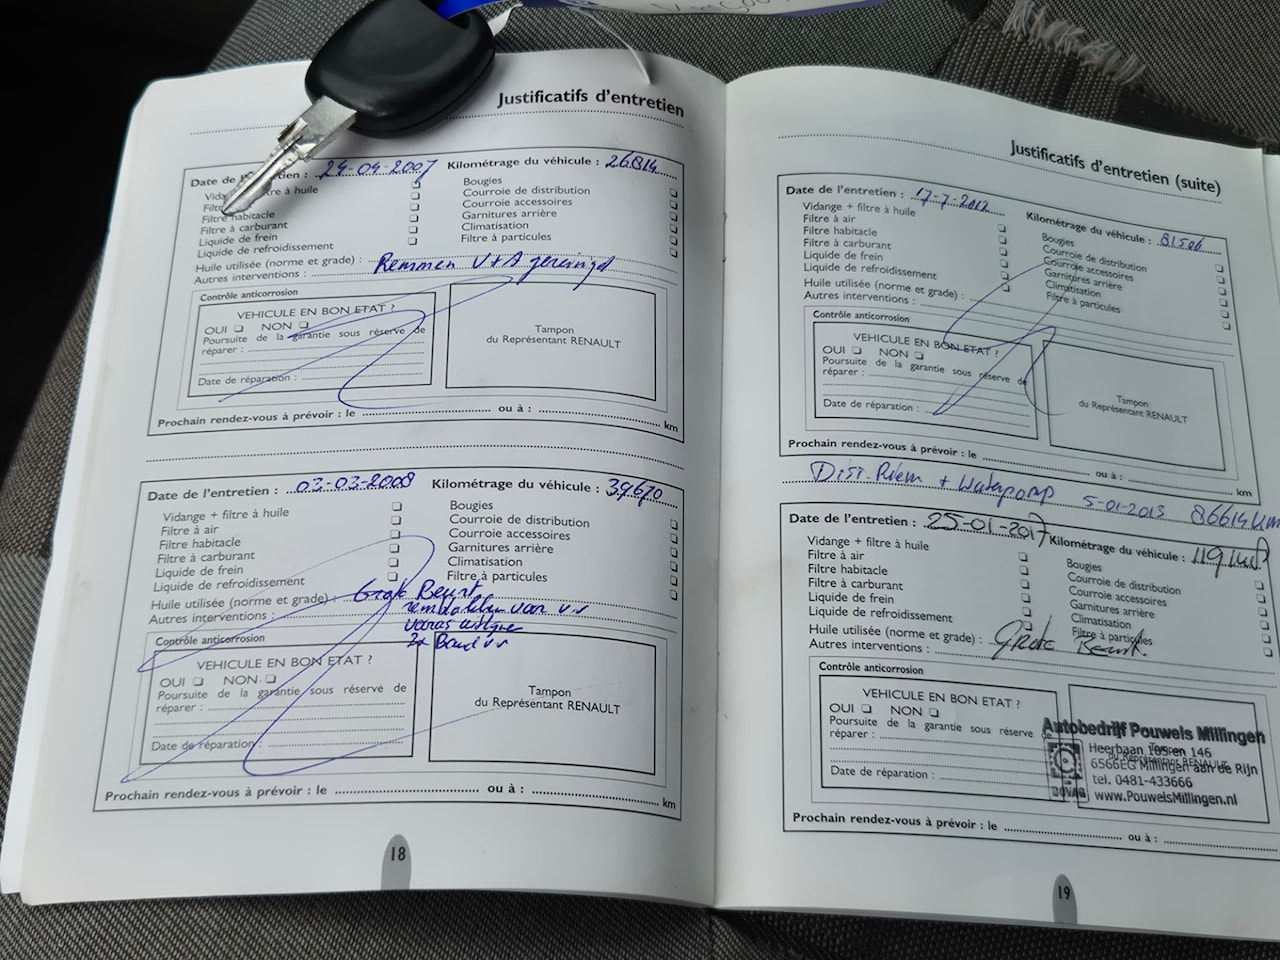 Justificatifs d'entretien
Date de l' tien : 24-04-2007 Kilométrage du véhicule : 26814
Vida tre à huile
Filtr
Filtre habitacle
Filtre à carburant
Liquide de frein
Liquide de refroidissement
Bougies
Courroie de distribution
Courroie accessoires
Garnitures arrière
Climatisation
Filtre à particules
Huile utilisée (norme et grade) :
Autres interventions : Remmen V+A gereinigd
Contrôle anticorrosion
VEHICULE EN BON ETAT ?
OUI NON
Poursuite de la garantie sous réserve de
réparer :
Date de réparation :
Tampon
du Représentant RENAULT
Prochain rendez-vous à prévoir : le ou à : km
Date de l'entretien : 03-03-2008 Kilométrage du véhicule : 39670
Vidange + filtre à huile
Filtre à air
Filtre habitacle
Filtre à carburant
Liquide de frein
Liquide de refroidissement
Bougies
Courroie de distribution
Courroie accessoires
Garnitures arrière
Climatisation
Filtre à particules
Huile utilisée (norme et grade) : Grote Beurt
Autres interventions : remblokken van vv
2x Band vv
Contrôle anticorrosion
VEHICULE EN BON ETAT ?
OUI NON
Poursuite de la garantie sous réserve de
réparer :
Date de réparation :
Tampon
du Représentant RENAULT
Prochain rendez-vous à prévoir : le ou à : km
18
Justificatifs d'entretien (suite)
Date de l'entretien : 17-7-2012 Kilométrage du véhicule : 81506
Vidange + filtre à huile
Filtre à air
Filtre habitacle
Filtre à carburant
Liquide de frein
Liquide de refroidissement
Bougies
Courroie de distribution
Courroie accessoires
Garnitures arrière
Climatisation
Filtre à particules
Huile utilisée (norme et grade) :
Autres interventions :
Contrôle anticorrosion
VEHICULE EN BON ETAT ?
OUI NON
Poursuite de la garantie sous réserve de
réparer :
Date de réparation :
Tampon
du Représentant RENAULT
Prochain rendez-vous à prévoir : le ou à : km
Dist. Riem + Waterpomp 5-01-2013 86614 km
Date de l'entretien : 25-01-2017 Kilométrage du véhicule :
Vidange + filtre à huile
Filtre à air
Filtre habitacle
Filtre à carburant
Liquide de frein
Liquide de refroidissement
Bougies
Courroie de distribution
Courroie accessoires
Garnitures arrière
Climatisation
Filtre à particules
Huile utilisée (norme et grade) :
Autres interventions : Grote Beurt.
Contrôle anticorrosion
VEHICULE EN BON ETAT ?
OUI NON
Poursuite de la garantie sous réserve de
réparer :
Date de réparation :
Autobedrijf Pouwels Millingen
Heerbaan en 146
6566EG Millingen aan de Rijn
tel. 0481-433666
www.PouwelsMillingen.nl
BOVAG
Tampon
du Représentant RENAULT
Prochain rendez-vous à prévoir : le ou à :
19